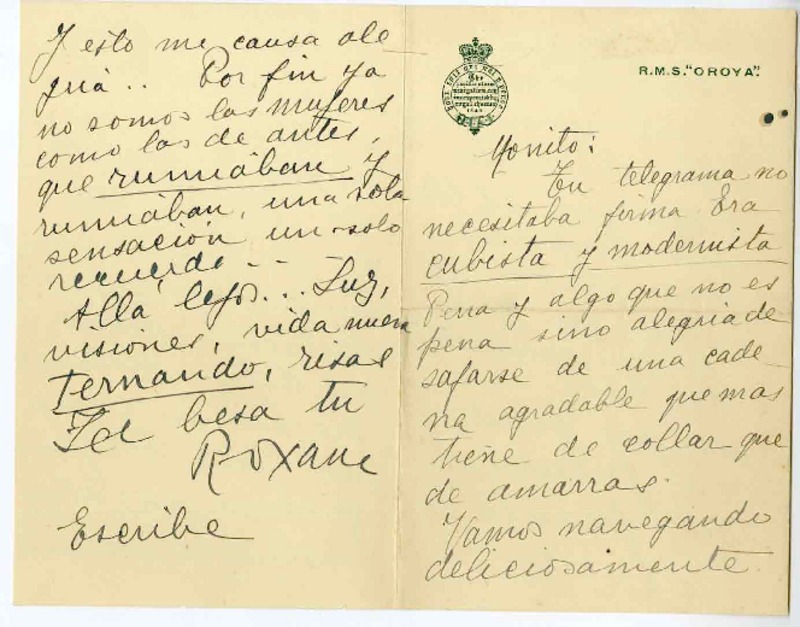 R.M.S. "OROYA".
Monito:
Tu telegrama no
necesitaba firma. Era
cubista y modernista
Pena y algo que no es
pena sino alegria de
safarse de una cade
na agradable que mas
tiene de collar que
de amarras.
Vamos navegando
deliciosamente
Y esto me causa ale
gría.. Por fin ya
no somos las mujeres
como las de antes,
que rumiában y
rumiában, una sola
sensación un solo
recuerdo - - -
Allá lejos... Luz,
visiones, vida nueva
Fernando, risas
Te besa tu
Roxane
Escribe